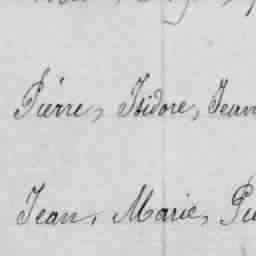 Pierre, Isidore, Jean
Jean, Marie,